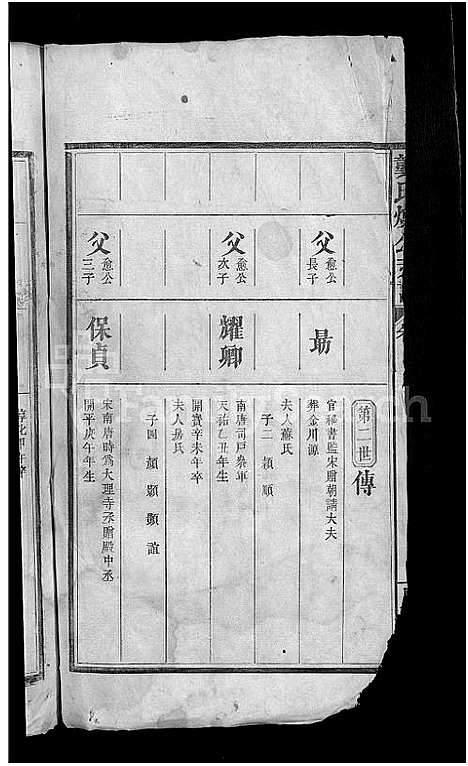 第二世
傳
父 愈公長子
勗
官秘書監宋贈朝請大夫
葬金川源
夫人蘇氏
子二 穎 順
父 愈公次子
耀卿
南唐司戶參軍
天祐乙丑年生
開寶辛未年卒
夫人孫氏
子四 頡 顥 顗 誼
父 愈公三子
保貞
宋南唐時為大理寺丞贈殿中丞
開平庚午年生